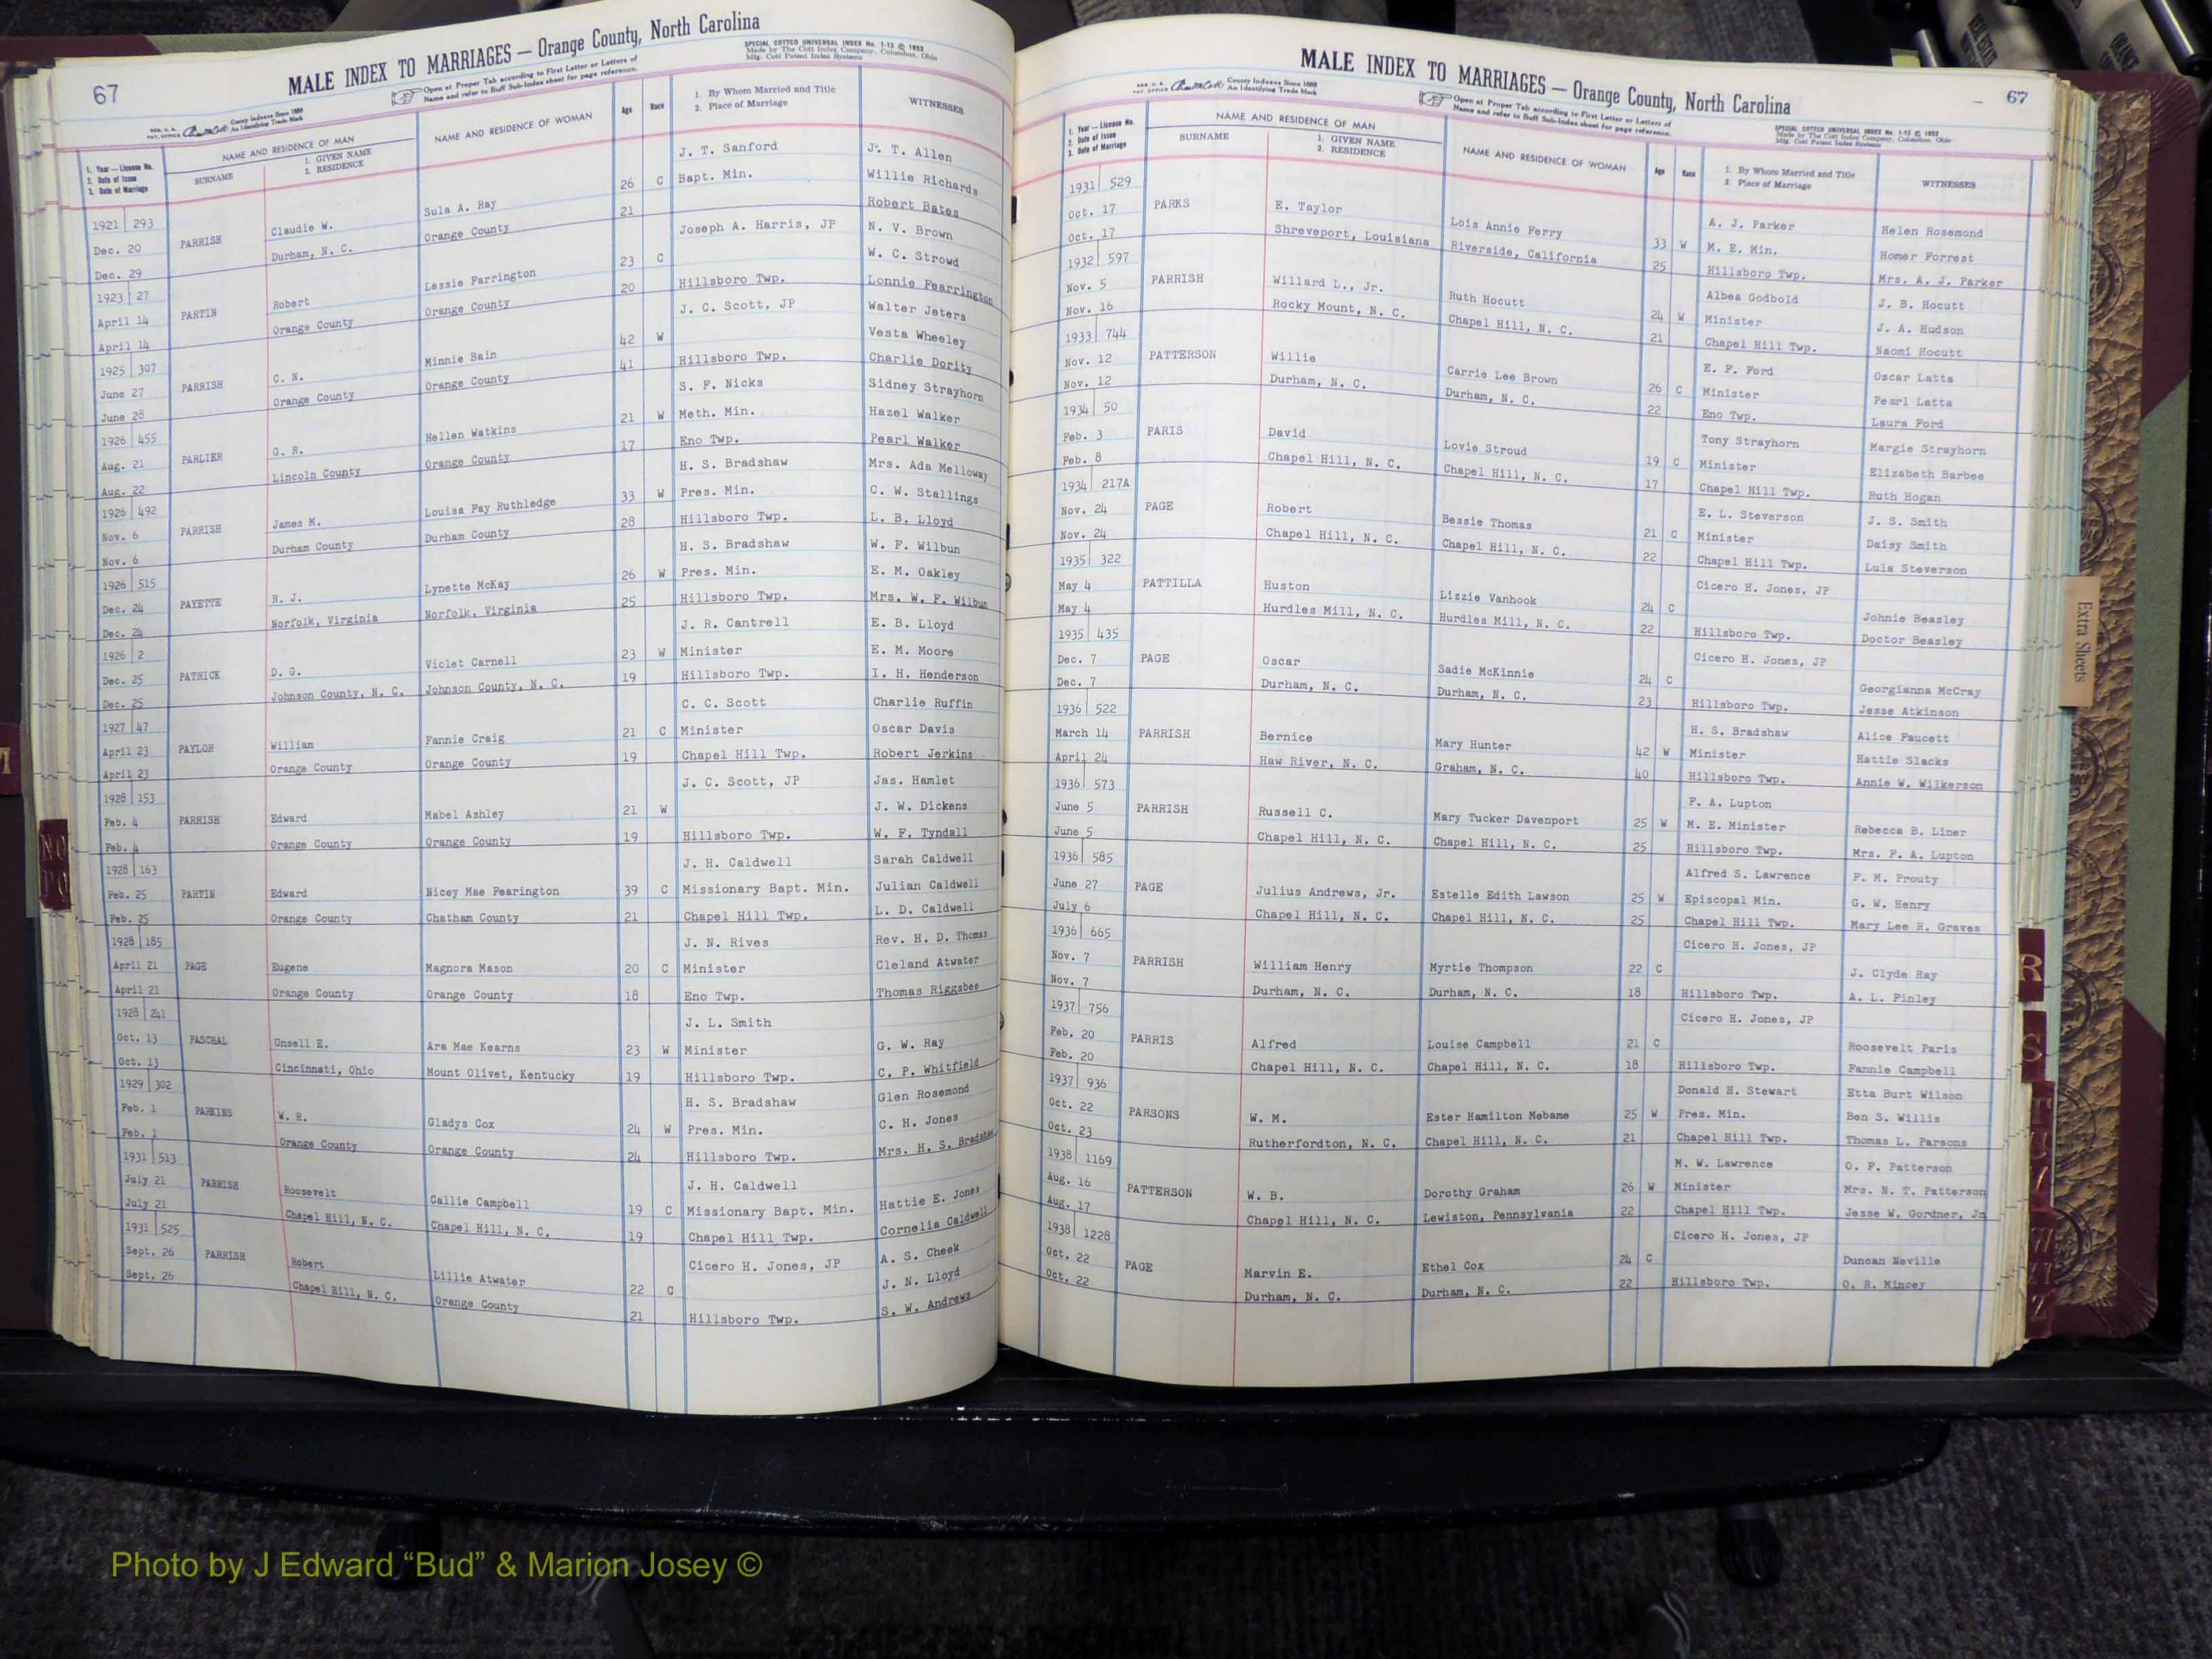 67
MALE INDEX TO MARRIAGES — Orange County, North Carolina
SPECIAL COTTCO UNIVERSAL INDEX No. 1-12 © 1952
Made by The Cott Index Company, Columbus, Ohio
Mfg. Cott Patent Index Systems
Open at Proper Tab according to First Letter or Letters of
Name and refer to Buff Sub-Index sheet for page reference.
County Indexes Since 1888
An Identifying Trade Mark
1. Year — License No.
2. Date of Issue
3. Date of Marriage
NAME AND RESIDENCE OF MAN
SURNAME
1. GIVEN NAME
2. RESIDENCE
NAME AND RESIDENCE OF WOMAN
Age
Race
1. By Whom Married and Title
2. Place of Marriage
WITNESSES
1921 293 J. T. Sanford J. T. Allen
Dec. 20 PARRISH Claudie W. Sula A. Ray 26 C Bapt. Min. Willie Richards
Dec. 29 Durham, N. C. Orange County 21 Robert Bates
1923 27 Joseph A. Harris, JP N. V. Brown
April 14 PARTIN Robert Lessie Farrington 23 C W. C. Strowd
April 14 Orange County Orange County 20 Hillsboro Twp. Lonnie Fearrington
1925 307 J. C. Scott, JP Walter Jeters
June 27 PARRISH C. N. Minnie Bain 42 W Vesta Wheeley
June 28 Orange County Orange County 41 Hillsboro Twp. Charlie Dority
1926 455 S. F. Nicks Sidney Strayhorn
Aug. 21 PARLIER G. R. Hellen Watkins 21 W Meth. Min. Hazel Walker
Aug. 22 Lincoln County Orange County 17 Eno Twp. Pearl Walker
1926 492 H. S. Bradshaw Mrs. Ada Melloway
Nov. 6 PARRISH James M. Louisa Fay Ruthledge 33 W Pres. Min. C. W. Stallings
Nov. 6 Durham County Durham County 28 Hillsboro Twp. L. B. Lloyd
1926 515 H. S. Bradshaw W. F. Wilbun
Dec. 24 PAYETTE R. J. Lynette McKay 26 W Pres. Min. E. M. Oakley
Dec. 24 Norfolk, Virginia Norfolk, Virginia 25 Hillsboro Twp. Mrs. W. F. Wilbun
1926 2 J. R. Cantrell E. B. Lloyd
Dec. 25 PATRICK D. G. Violet Carnell 23 W Minister E. M. Moore
Dec. 25 Johnson County, N. C. Johnson County, N. C. 19 Hillsboro Twp. I. H. Henderson
1927 47 C. C. Scott Charlie Ruffin
April 23 PAYLOR William Fannie Craig 21 C Minister Oscar Davis
April 23 Orange County Orange County 19 Chapel Hill Twp. Robert Jerkins
1928 153 J. C. Scott, JP Jas. Hamlet
Feb. 4 PARRISH Edward Mabel Ashley 21 W J. W. Dickens
Feb. 4 Orange County Orange County 19 Hillsboro Twp. W. F. Tyndall
1928 163 J. H. Caldwell Sarah Caldwell
Feb. 25 PARTIN Edward Nicey Mae Fearington 39 C Missionary Bapt. Min. Julian Caldwell
Feb. 25 Orange County Chatham County 21 Chapel Hill Twp. L. D. Caldwell
1928 185 J. N. Rives Rev. H. D. Thomas
April 21 PAGE Eugene Magnora Mason 20 C Minister Cleland Atwater
April 21 Orange County Orange County 18 Eno Twp. Thomas Riggsbee
1928 241 J. L. Smith
Oct. 13 PASCHAL Unsell E. Ara Mae Kearns 23 W Minister G. W. Ray
Oct. 13 Cincinnati, Ohio Mount Olivet, Kentucky 19 Hillsboro Twp. C. P. Whitfield
1929 302 H. S. Bradshaw Glen Rosemond
Feb. 1 PARKINS W. R. Gladys Cox 24 W Pres. Min. C. H. Jones
Feb. 1 Orange County Orange County 24 Hillsboro Twp. Mrs. H. S. Bradshaw
1931 513 J. H. Caldwell
July 21 PARRISH Roosevelt Callie Campbell 19 C Missionary Bapt. Min. Hattie E. Jones
July 21 Chapel Hill, N. C. Chapel Hill, N. C. 19 Chapel Hill Twp. Cornelia Caldwell
1931 525 Cicero H. Jones, JP A. S. Cheek
Sept. 26 PARRISH Robert Lillie Atwater 22 C J. N. Lloyd
Sept. 26 Chapel Hill, N. C. Orange County 21 Hillsboro Twp. S. W. Andrews
MALE INDEX TO MARRIAGES — Orange County, North Carolina
67
County Indexes Since 1888
An Identifying Trade Mark
Open at Proper Tab according to First Letter or Letters of
Name and refer to Buff Sub-Index sheet for page reference.
SPECIAL COTTCO UNIVERSAL INDEX No. 1-12 © 1952
Made by The Cott Index Company, Columbus, Ohio
Mfg. Cott Patent Index Systems
1. Year — License No.
2. Date of Issue
3. Date of Marriage
NAME AND RESIDENCE OF MAN
SURNAME
1. GIVEN NAME
2. RESIDENCE
NAME AND RESIDENCE OF WOMAN
Age
Race
1. By Whom Married and Title
2. Place of Marriage
WITNESSES
1931 529 A. J. Parker Helen Rosemond
Oct. 17 PARKS E. Taylor Lois Annie Ferry 33 W M. E. Min. Homer Forrest
Oct. 17 Shreveport, Louisiana Riverside, California 25 Hillsboro Twp. Mrs. A. J. Parker
1932 597 Albea Godbold J. B. Hocutt
Nov. 5 PARRISH Willard L., Jr. Ruth Hocutt 24 W Minister J. A. Hudson
Nov. 16 Rocky Mount, N. C. Chapel Hill, N. C. 21 Chapel Hill Twp. Naomi Hocutt
1933 744 E. F. Ford Oscar Latta
Nov. 12 PATTERSON Willie Carrie Lee Brown 26 C Minister Pearl Latta
Nov. 12 Durham, N. C. Durham, N. C. 22 Eno Twp. Laura Ford
1934 50 Tony Strayhorn Margie Strayhorn
Feb. 3 PARIS David Lovie Stroud 19 C Minister Elizabeth Barbee
Feb. 8 Chapel Hill, N. C. Chapel Hill, N. C. 17 Chapel Hill Twp. Ruth Hogan
1934 217A E. L. Steverson J. S. Smith
Nov. 24 PAGE Robert Bessie Thomas 21 C Minister Daisy Smith
Nov. 24 Chapel Hill, N. C. Chapel Hill, N. C. 22 Chapel Hill Twp. Lula Steverson
1935 322 Cicero H. Jones, JP
May 4 PATTILLA Huston Lizzie Vanhook 24 C Johnie Beasley
May 4 Hurdles Mill, N. C. Hurdles Mill, N. C. 22 Hillsboro Twp. Doctor Beasley
1935 435 Cicero H. Jones, JP
Dec. 7 PAGE Oscar Sadie McKinnie 24 C Georgianna McCray
Dec. 7 Durham, N. C. Durham, N. C. 23 Hillsboro Twp. Jesse Atkinson
1936 522 H. S. Bradshaw Alice Faucett
March 14 PARRISH Bernice Mary Hunter 42 W Minister Hattie Slacks
April 24 Haw River, N. C. Graham, N. C. 40 Hillsboro Twp. Annie W. Wilkerson
1936 573 F. A. Lupton
June 5 PARRISH Russell C. Mary Tucker Davenport 25 W M. E. Minister Rebecca B. Liner
June 5 Chapel Hill, N. C. Chapel Hill, N. C. 25 Hillsboro Twp. Mrs. F. A. Lupton
1936 585 Alfred S. Lawrence F. M. Prouty
June 27 PAGE Julius Andrews, Jr. Estelle Edith Lawson 25 W Episcopal Min. G. W. Henry
July 6 Chapel Hill, N. C. Chapel Hill, N. C. 25 Chapel Hill Twp. Mary Lee R. Graves
1936 665 Cicero H. Jones, JP
Nov. 7 PARRISH William Henry Myrtie Thompson 22 C J. Clyde Ray
Nov. 7 Durham, N. C. Durham, N. C. 18 Hillsboro Twp. A. L. Finley
1937 756 Cicero H. Jones, JP
Feb. 20 PARRIS Alfred Louise Campbell 21 C Roosevelt Paris
Feb. 20 Chapel Hill, N. C. Chapel Hill, N. C. 18 Hillsboro Twp. Fannie Campbell
1937 936 Donald H. Stewart Etta Burt Wilson
Oct. 22 PARSONS W. M. Ester Hamilton Mebame 25 W Pres. Min. Ben S. Willis
Oct. 23 Rutherfordton, N. C. Chapel Hill, N. C. 21 Chapel Hill Twp. Thomas L. Parsons
1938 1169 M. W. Lawrence O. F. Patterson
Aug. 16 PATTERSON W. B. Dorothy Graham 26 W Minister Mrs. N. T. Patterson
Aug. 17 Chapel Hill, N. C. Lewiston, Pennsylvania 22 Chapel Hill Twp. Jesse W. Gordner, Jr
1938 1228 Cicero H. Jones, JP
Oct. 22 PAGE Marvin E. Ethel Cox 24 C Duncan Neville
Oct. 22 Durham, N. C. Durham, N. C. 22 Hillsboro Twp. O. R. Mincey
Extra Sheets
R
S
Photo by J Edward “Bud” & Marion Josey ©